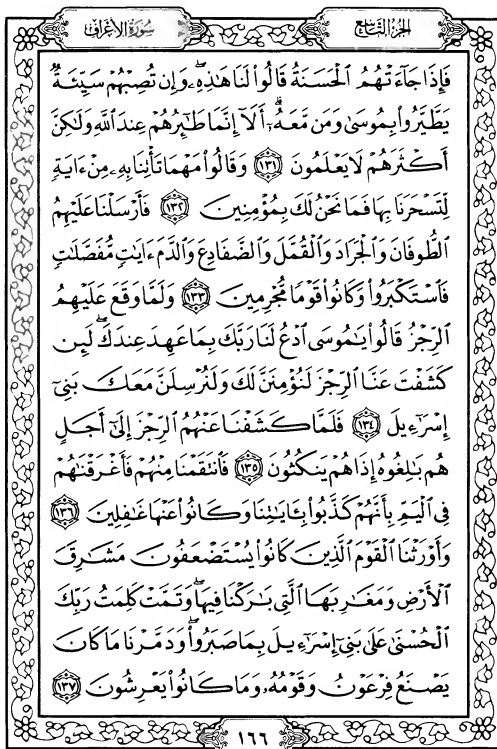 الجزء التاسع
سورة الأعراف
فَإِذَا جَاءَتْهُمُ الْحَسَنَةُ قَالُوا لَنَا هَٰذِهِ وَإِن تُصِبْهُمْ سَيِّئَةٌ
يَطَّيَّرُوا بِمُوسَىٰ وَمَن مَّعَهُ أَلَا إِنَّمَا طَائِرُهُمْ عِندَ اللَّهِ وَلَٰكِنَّ
أَكْثَرَهُمْ لَا يَعْلَمُونَ ١٣١ وَقَالُوا مَهْمَا تَأْتِنَا بِهِ مِنْ ءَايَةٍ
لِّتَسْحَرَنَا بِهَا فَمَا نَحْنُ لَكَ بِمُؤْمِنِينَ ١٣٢ فَأَرْسَلْنَا عَلَيْهِمُ
الطُّوفَانَ وَالْجَرَادَ وَالْقُمَّلَ وَالضَّفَادِعَ وَالدَّمَ ءَايَٰتٍ مُّفَصَّلَٰتٍ
فَاسْتَكْبَرُوا وَكَانُوا قَوْمًا مُّجْرِمِينَ ١٣٣ وَلَمَّا وَقَعَ عَلَيْهِمُ
الرِّجْزُ قَالُوا يَٰمُوسَى ادْعُ لَنَا رَبَّكَ بِمَا عَهِدَ عِندَكَ لَئِن
كَشَفْتَ عَنَّا الرِّجْزَ لَنُؤْمِنَنَّ لَكَ وَلَنُرْسِلَنَّ مَعَكَ بَنِي
إِسْرَٰٓءِيلَ ١٣٤ فَلَمَّا كَشَفْنَا عَنْهُمُ الرِّجْزَ إِلَىٰ أَجَلٍ
هُم بَٰلِغُوهُ إِذَا هُمْ يَنكُثُونَ ١٣٥ فَانتَقَمْنَا مِنْهُمْ فَأَغْرَقْنَٰهُمْ
فِي الْيَمِّ بِأَنَّهُمْ كَذَّبُوا بِـَٔايَٰتِنَا وَكَانُوا عَنْهَا غَٰفِلِينَ ١٣٦
وَأَوْرَثْنَا الْقَوْمَ الَّذِينَ كَانُوا يُسْتَضْعَفُونَ مَشَٰرِقَ
الْأَرْضِ وَمَغَٰرِبَهَا الَّتِي بَٰرَكْنَا فِيهَا وَتَمَّتْ كَلِمَتُ رَبِّكَ
الْحُسْنَىٰ عَلَىٰ بَنِي إِسْرَٰٓءِيلَ بِمَا صَبَرُوا وَدَمَّرْنَا مَا كَانَ
يَصْنَعُ فِرْعَوْنُ وَقَوْمُهُ وَمَا كَانُوا يَعْرِشُونَ ١٣٧
١٦٦